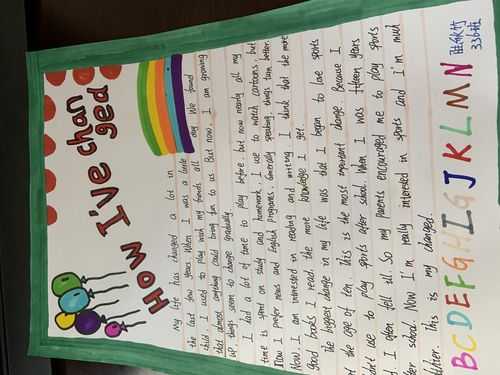 How I've chan
ged
My life has changed a lot in
the last few years. When I was a little
child I used to play with my friends all
day We found
that almost anything could bring fun to us But now, I am growing
up, things seem to change gradually
I had a lot of time to play before, but now nearly all my
time is spent on study and homework. I use to watch cartoons, but
now I prefer news and English programs. Generally speaking, things turn better.
Now, I am interested in reading and writing I think that the more
good books I read, the more knowledge I get.
The biggest change in my life was that I began to love sports
t the age of ten This is the most important change Because I
dn't use to play sports after school. When I was thteen years
d I often fell ill. So my parents encouraged me to play sports
fter school. Now I'm really interested in sports and I'm much
lthier This is my changed.
BCDEFGHIGJKLMN
336班